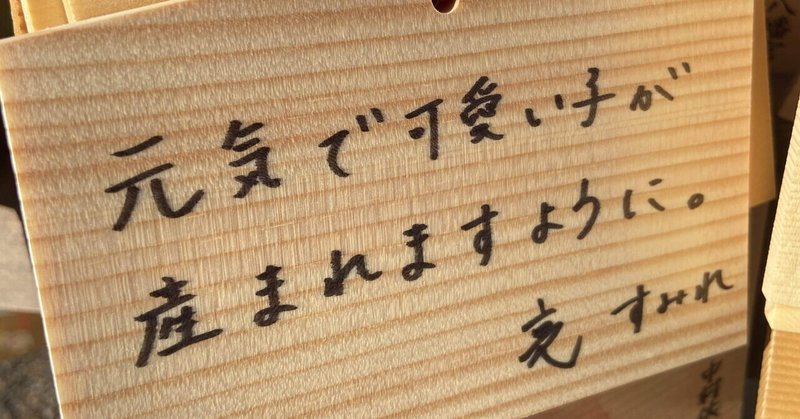 元気で可愛い子が
産まれますように。
亮 すみれ